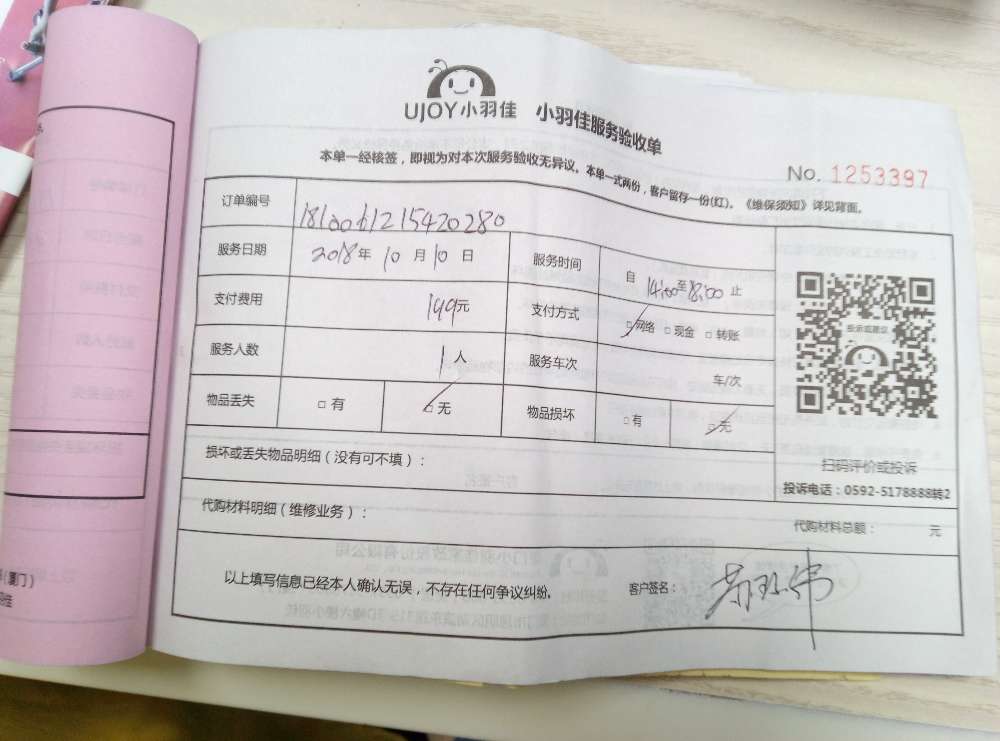 UJOY小羽佳 小羽佳服务验收单
本单一经核签，即视为对本次服务验收无异议。本单一式两份，客户留存一份(红)。《维保须知》详见背面。
No. 1253397
订单编号
服务日期 2018年 10 月 10 日 服务时间 自 14:00至18:00 止
支付费用 149元 支付方式 ☑网络 □现金 □转账
服务人数 1人 服务车次 车/次
物品丢失 □有 ☑无 物品损坏 □有 ☑无
投诉或建议
扫码评价或投诉
投诉电话：0592-5178888转2
损坏或丢失物品明细（没有可不填）：
代购材料明细（维修业务）： 代购材料总额： 元
以上填写信息已经本人确认无误，不存在任何争议纠纷。 客户签名：